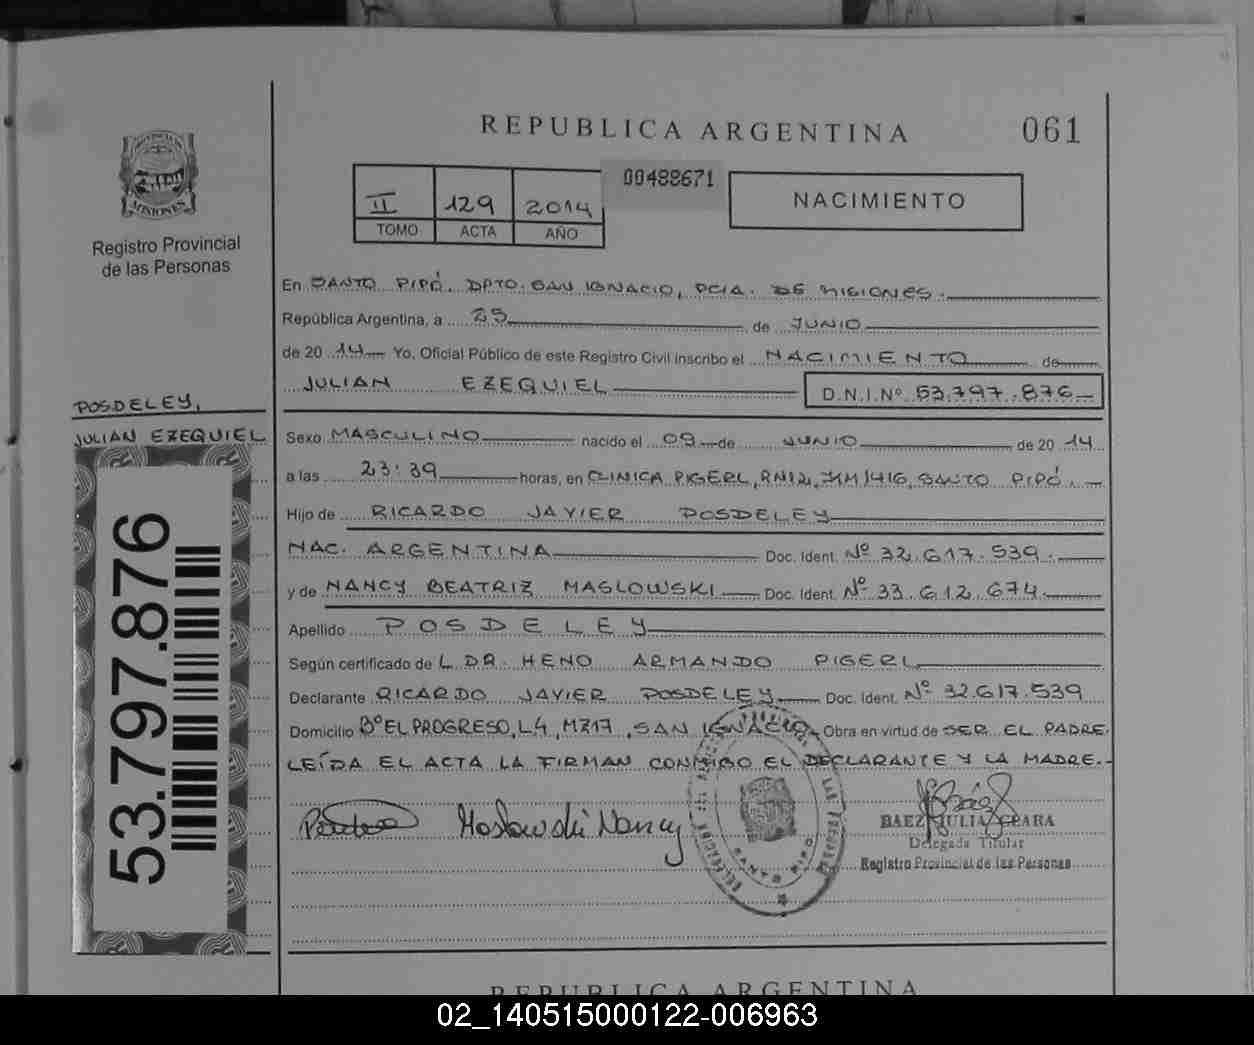 REPUBLICA ARGENTINA
061
PROVINCIA DE
MISIONES
Registro Provincial
de las Personas
II 129 2014
TOMO ACTA AÑO
00488671
NACIMIENTO
En SANTO PIPÓ, DPTO. SAN IGNACIO, PCIA. DE MISIONES.
República Argentina, a 25 de JUNIO
de 2014 Yo, Oficial Público de este Registro Civil inscribo el NACIMIENTO de
JULIAN EZEQUIEL D.N.I.Nº 53.797.876
POSDELEY,
JULIAN EZEQUIEL
53.797.876
Sexo MASCULINO nacido el 09 de JUNIO de 2014
a las 23:39 horas, en CLINICA PIGERL, RN12, KM1416, SANTO PIPÓ.
Hijo de RICARDO JAVIER POSDELEY
NAC. ARGENTINA Doc. Ident. Nº 32.617.539.
y de NANCY BEATRIZ MASLOWSKI Doc. Ident. Nº 33.612.674.
Apellido POSDELEY
Según certificado de L DR. HENO ARMANDO PIGERL
Declarante RICARDO JAVIER POSDELEY Doc. Ident. Nº 32.617.539
Domicilio Bº EL PROGRESO, L4, MZ17, SAN IGNACIO Obra en virtud de SER EL PADRE.
LEÍDA EL ACTA LA FIRMAN CONMIGO EL DECLARANTE Y LA MADRE.
Maslowski Nancy
DELEGACION DEL REGISTRO DE LAS PERSONAS
SANTO PIPO
BAEZ JULIA CLARA
Delegada Titular
Registro Provincial de las Personas
REPUBLICA ARGENTINA
02_140515000122-006963